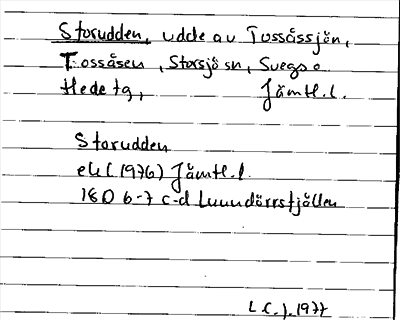 Storudden, udde av Tossåssjön,
Tossåsen, Storsjö sn, Svegs o
Hede tg, Jämtl.l.
Storudden
ek (1976) Jämtl.l
18D 6-7 c-d Lunndörrsfjällen
L.C.J. 1977